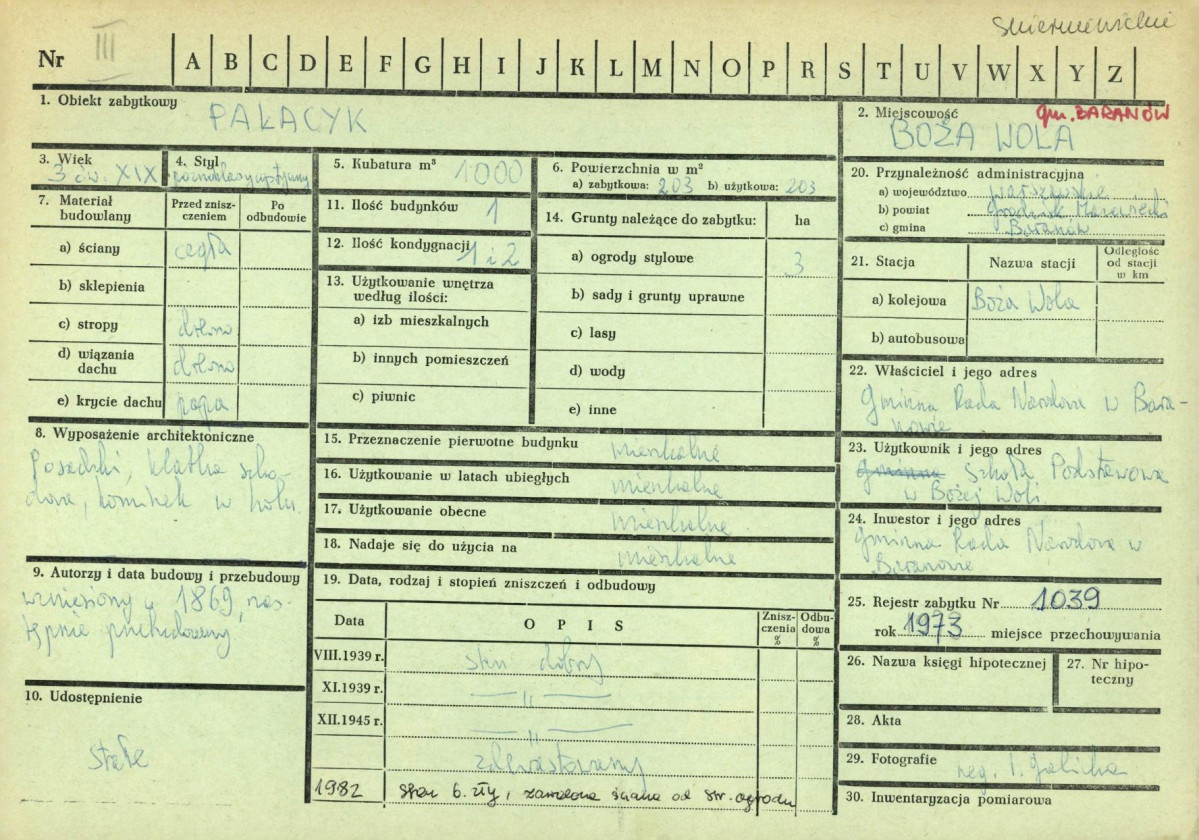 Skierniewickie
Nr III A B C D E F G H I J K L M N O P R S T U V W X Y Z
1. Obiekt zabytkowy
PAŁACYK
2. Miejscowość gm. BARANÓW
BOŻA WOLA
3. Wiek
3 ćw. XIX
4. Styl
późnoklasycystyczny
5. Kubatura m³ 1000
6. Powierzchnia w m²
a) zabytkowa: 203 b) użytkowa: 203
7. Materiał budowlany
Przed zniszczeniem
Po odbudowie
a) ściany cegła
b) sklepienia
c) stropy drewno
d) wiązania dachu drewno
e) krycie dachu papa
8. Wyposażenie architektoniczne
Posadzki, klatka scho-
dowa, kominek w holu.
9. Autorzy i data budowy i przebudowy
wzniesiony w 1869 nas-
tępnie przebudowany.
10. Udostępnienie
stałe
11. Ilość budynków 1
12. Ilość kondygnacji 1 i 2
13. Użytkowanie wnętrza
według ilości:
a) izb mieszkalnych
b) innych pomieszczeń
c) piwnic
14. Grunty należące do zabytku: ha
a) ogrody stylowe 3
b) sady i grunty uprawne
c) lasy
d) wody
e) inne
15. Przeznaczenie pierwotne budynku mieszkalne
16. Użytkowanie w latach ubiegłych mieszkalne
17. Użytkowanie obecne mieszkalne
18. Nadaje się do użycia na mieszkalne
19. Data, rodzaj i stopień zniszczeń i odbudowy
Data OPIS Zniszczenia % Odbudowa %
VIII.1939 r. stan dobry
XI.1939 r. — " —
XII.1945 r. — " —
zdewastowany
1982 stan b. zły, zawalona ściana od str. ogrodu
20. Przynależność administracyjna
a) województwo warszawskie
b) powiat Grodzisk Mazowiecki
c) gmina Baranów
21. Stacja Nazwa stacji Odległość od stacji w km
a) kolejowa Boża Wola
b) autobusowa
22. Właściciel i jego adres
Gminna Rada Narodowa w Bara-
nowie
23. Użytkownik i jego adres
Gminna Szkoła Podstawowa
w Bożej Woli.
24. Inwestor i jego adres
Gminna Rada Narodowa w
Baranowie
25. Rejestr zabytku Nr 1039
rok 1973 miejsce przechowywania
26. Nazwa księgi hipotecznej
27. Nr hipoteczny
28. Akta
29. Fotografie neg. T. Galicka
30. Inwentaryzacja pomiarowa